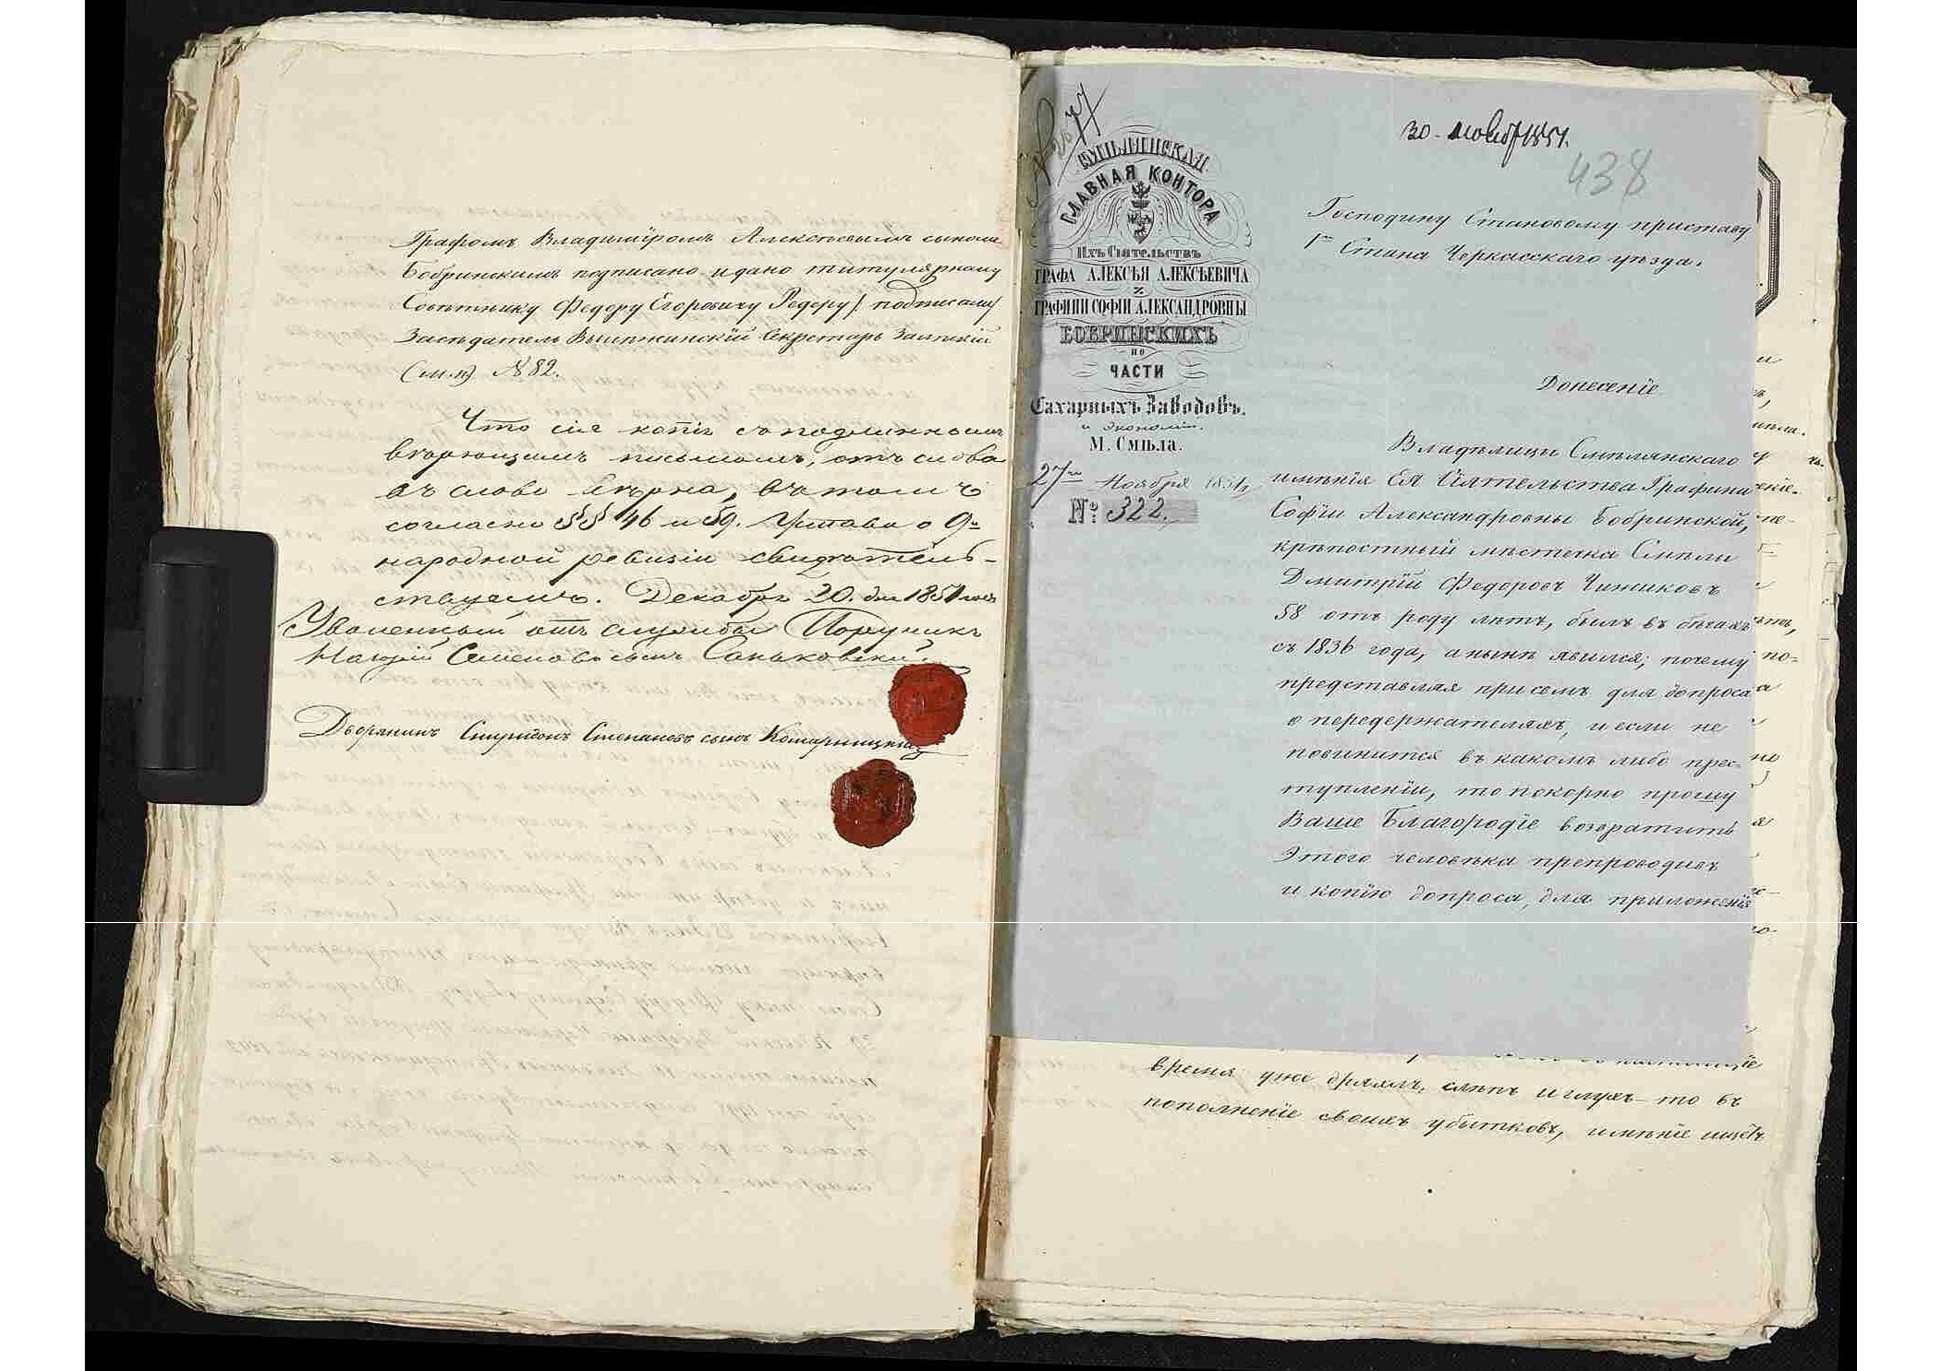 Графомъ Владимiромъ Алексѣевымъ сыномъ
Бобринскимъ подписано и дано титулярному
Совѣтнику Федору Егоровичу Редеру/. подписали
Засѣдатель Секретарь
(м.п) №82.
Что сія копія съ подлиннымъ
вѣрющимъ письмомъ, отъ слова
въ слово вѣрна, въ томъ и
согласно §§ 46 и 59. Устава о 9й
народной ревизіи свидѣтель-
ствуемъ. Декабря 20. дня 1851 года
Уволенный отъ службы Поручикъ
Семеновъ сынъ
Дворянинъ Спиридонъ Степановъ сынъ Комарницкій
№ 77
СМѢЛЯНСКАЯ
ГЛАВНАЯ КОНТОРА
ИхЪ СіятельствЪ
ГРАФА АЛЕКСѢЯ АЛЕКСѢЕВИЧА
и
ГРАФИНИ СОФІИ АЛЕКСАНДРОВНЫ
БОБРИНСКИХЪ
ПО
ЧАСТИ
Сахарныхъ Заводовъ.
и Экономіи.
М. Смѣла.
27го Ноября 1851
№: 322.
30. ноябр 1851.
438
Господину Становому приставу
1го Стана Черкасскаго уѣзда.
Донесеніе
Владѣлицы Смѣлянскаго
имѣнія Ея Сіятельства Графини
Софіи Александровны Бобринской,
крѣпостный мѣстечка Смѣли
Дмитрій Федоровъ Чижиковъ
58 отъ роду лѣтъ, былъ въ бѣгахъ
съ 1836 года, а нынѣ явился; почему
представляя при семъ для допроса
о передержателяхъ, и если не
повинится въ какомъ либо прес-
тупленіи, то покорно прошу
Ваше Благородіе возвратить
этого человѣка препроводивъ
и копію допроса, для приложенія
время уже дряхлъ, слѣпъ и глухъ - то въ
пополненіе своихъ убытковъ, имѣніе ищетъ